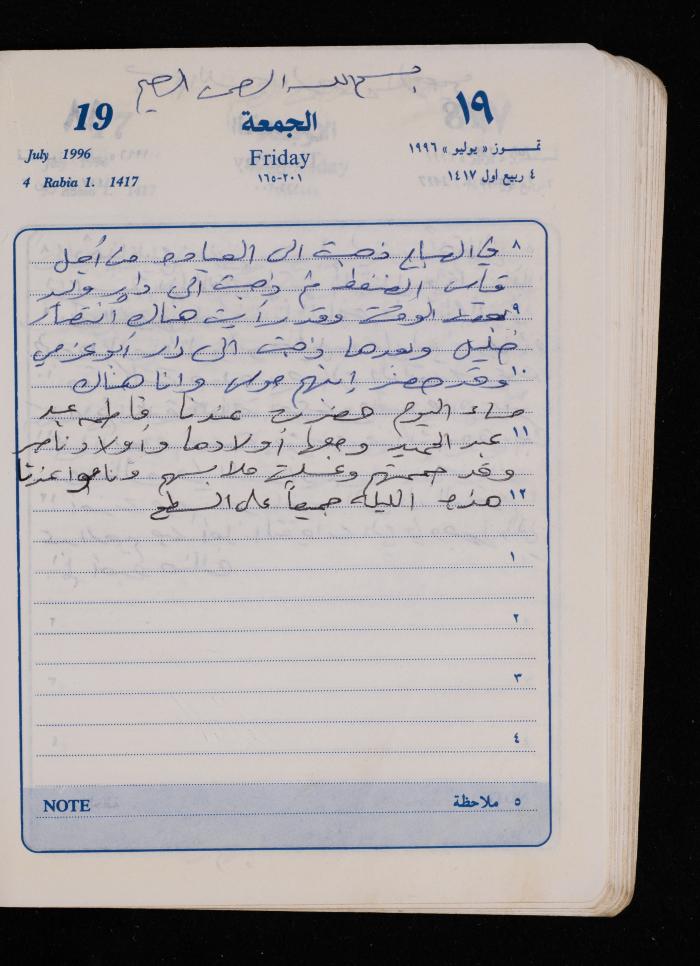 بسم الله الرحمن الرحيم
19 الجمعة ١٩
July 1996 Friday تمــــوز « يوليو » ١٩٩٦
4 Rabia 1. 1417 ٢٠١-١٦٥ ٤ ربيع اول ١٤١٧
٨ في الصباح ذهبت الى العيادة من أجل
قياس الضغط ثم ذهبت الى دار وليد
٩ بعض الوقت وقد رأيت هناك أنتصار
خليل وبعدها ذهبت الى دار أبو عزمي
١٠ وقد حضر إبنهم موسى وانا هناك
مساء اليوم حضرت عندنا فاطمه عبد
١١ عبد الحميد ومعها أولادها وأولاد ناصر
وقد حممتهم وغسلت ملابسهم وناموا عندنا
١٢ هذه الليلة جميعاً على السطح
١
٢
٣
٤
NOTE ٥ ملاحظة